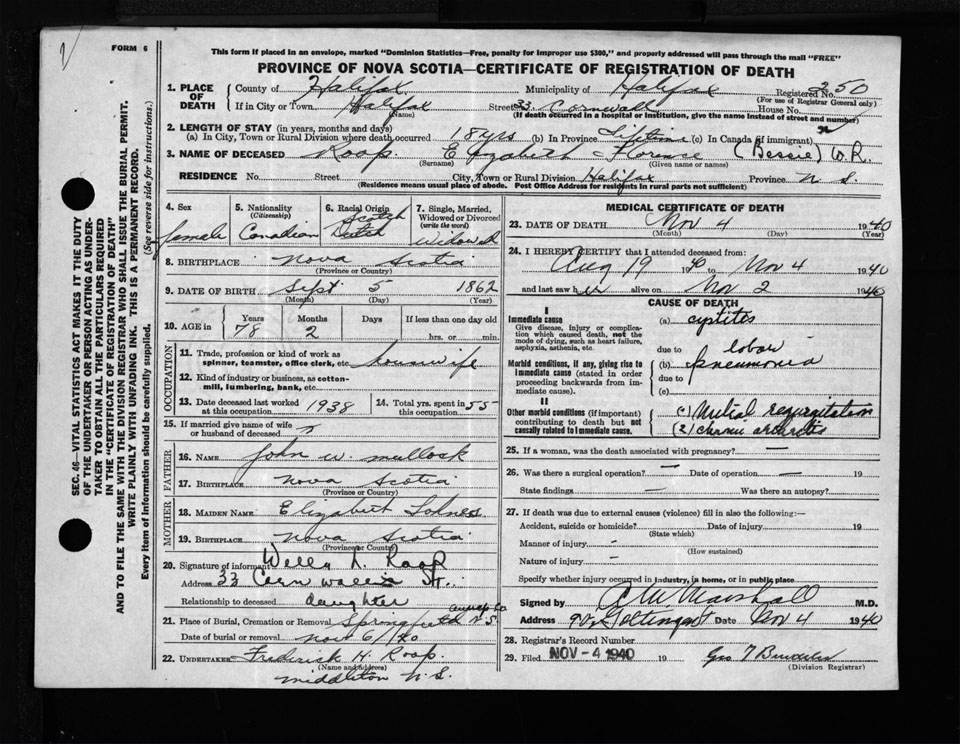 FORM 6
This form if placed in an envelope, marked "Dominion Statistics—Free, penalty for improper use $300," and properly addressed will pass through the mail "FREE"
PROVINCE OF NOVA SCOTIA—CERTIFICATE OF REGISTRATION OF DEATH
1. PLACE OF DEATH County of Halifax Municipality of Halifax Registered No. 250
(For use of Registrar General only)
If in City or Town Halifax Street 33 Cornwall House No.
(Name) (If death occurred in a hospital or institution, give the name instead of street and number)
2. LENGTH OF STAY (in years, months and days)
(a) In City, Town or Rural Division where death occurred 18 yrs (b) In Province Lifetime (c) In Canada (if immigrant)
3. NAME OF DECEASED Roop Elizabeth Florence (Bessie) W.R.
(Surname) (Given name or names)
RESIDENCE No. Street City, Town or Rural Division Halifax Province N. S.
(Residence means usual place of abode. Post Office Address for residents in rural parts not sufficient)
4. Sex female
5. Nationality (Citizenship) Canadian
6. Racial Origin Scotch Dutch
7. Single, Married, Widowed or Divorced (write the word) Widowed
8. BIRTHPLACE Nova Scotia
(Province or Country)
9. DATE OF BIRTH Sept 5 1862
(Month) (Day) (Year)
10. AGE in Years Months Days If less than one day old
78 2 hrs. or min.
OCCUPATION
11. Trade, profession or kind of work as spinner, teamster, office clerk, etc. housewife
12. Kind of industry or business, as cotton-mill, lumbering, bank, etc.
13. Date deceased last worked at this occupation 1938 14. Total yrs. spent in this occupation 55
15. If married give name of wife or husband of deceased
FATHER
16. NAME John W. Mullock
17. BIRTHPLACE Nova Scotia
(Province or Country)
MOTHER
18. MAIDEN NAME Elizabeth Lohnes
19. BIRTHPLACE Nova Scotia
(Province or Country)
20. Signature of informant Roop
Address 33 Cornwallis St.
Relationship to deceased daughter
21. Place of Burial, Cremation or Removal Springfield Annap. Co N.S.
Date of burial or removal Nov 6/40
22. UNDERTAKER Frederick H. Roop
(Name and address)
Middleton N.S.
MEDICAL CERTIFICATE OF DEATH
23. DATE OF DEATH Nov 4 1940
(Month) (Day) (Year)
24. I HEREBY CERTIFY that I attended deceased from:
Aug 19 1940 to Nov 4 1940
and last saw her alive on Nov 2 1940
CAUSE OF DEATH
I
Immediate cause (a) cystites
Give disease, injury or complication which caused death, not the mode of dying, such as heart failure, asphyxia, asthenia, etc.
due to
Morbid conditions, if any, giving rise to immediate cause (stated in order proceeding backwards from immediate cause). (b) lobar pneumonia
due to
(c)
II
Other morbid conditions (if important) contributing to death but not causally related to immediate cause. (1) Mitral regurgitation
(2) chronic arthritis
25. If a woman, was the death associated with pregnancy? —
26. Was there a surgical operation? — Date of operation — 19
State findings — Was there an autopsy?
27. If death was due to external causes (violence) fill in also the following:—
Accident, suicide or homicide? Date of injury 19
(State which)
Manner of injury -
(How sustained)
Nature of injury -
Specify whether injury occurred in industry, in home, or in public place
Signed by Marshall M.D.
Address 90 Gottingen St Date Nov 4 1940
28. Registrar's Record Number
29. Filed NOV - 4 1940 19 Geo T
(Division Registrar)
SEC. 46—VITAL STATISTICS ACT MAKES IT THE DUTY
OF THE UNDERTAKER OR PERSON ACTING AS UNDER-
TAKER TO OBTAIN ALL THE PARTICULARS REQUIRED
IN THE "CERTIFICATE OF REGISTRATION OF DEATH"
AND TO FILE THE SAME WITH THE DIVISION REGISTRAR WHO SHALL ISSUE THE BURIAL PERMIT.
WRITE PLAINLY WITH UNFADING INK. THIS IS A PERMANENT RECORD.
Every item of information should be carefully supplied. (See reverse side for instructions.)